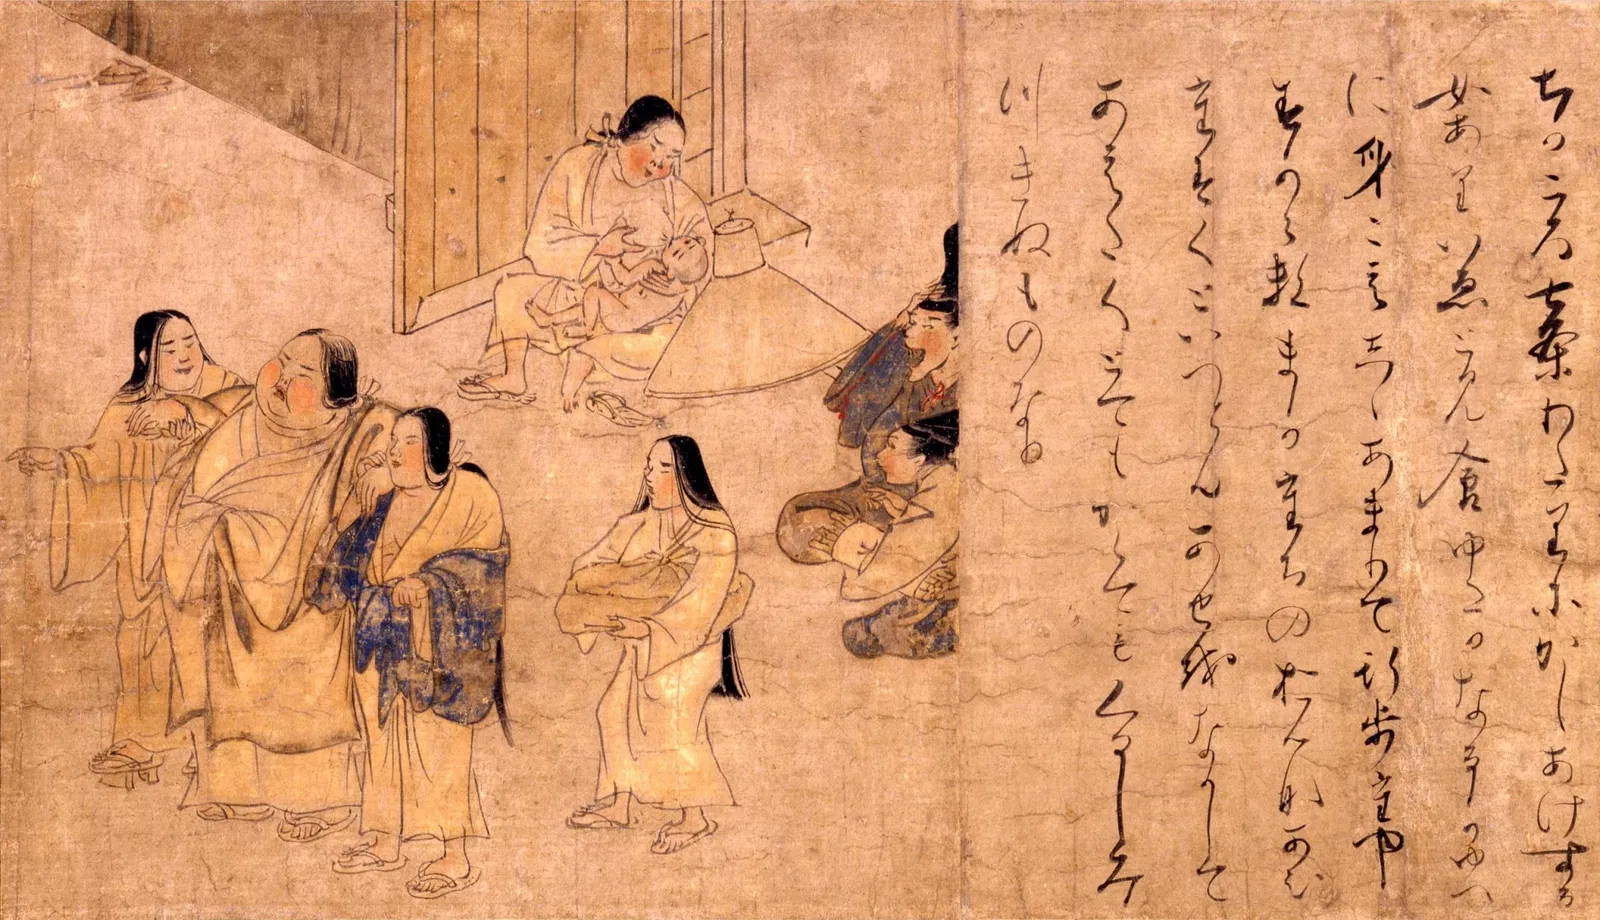 ちかころ七条わたりにかしあけする
女ありいゑとみ食ゆたかなるかゆへ
に身こえしゝあまりて行歩たや
すからすまかたちのおんなあひ
たすくといへともあせをなかして
あえくとてもかくてもくるしみ
つきぬものなり